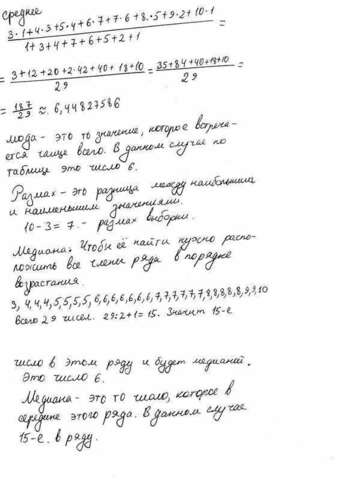 среднее
3·1+4·3+5·4+6·7+7·6+8·5+9·2+10·1 =
1+3+4+7+6+5+2+1
= 3+12+20+2·42+40+18+10 = 35+84+40+18+10 =
29 29
= 187 ≈ 6,44827586
29
мода - это то значение, которое встреча-
ется чаще всего. В данном случае по
таблице это число 6.
Размах - это разница между наибольшим
и наименьшим значениями.
10-3=7. - размах выборки.
Медиана: Чтобы её найти нужно распо-
ложить все члены ряда в порядке
возрастания.
3, 4,4,4,5,5,5,5, 6,6,6,6,6,6,6,7,7,7,7,7,7,8,8,8,8,8,9,9,10
Всего 29 чисел. 29:2+1=15. Значит 15-е
число в этом ряду и будет медианой.
Это число 6.
Медиана - это то число, которое в
середине этого ряда. В данном случае
15-е. в ряду.